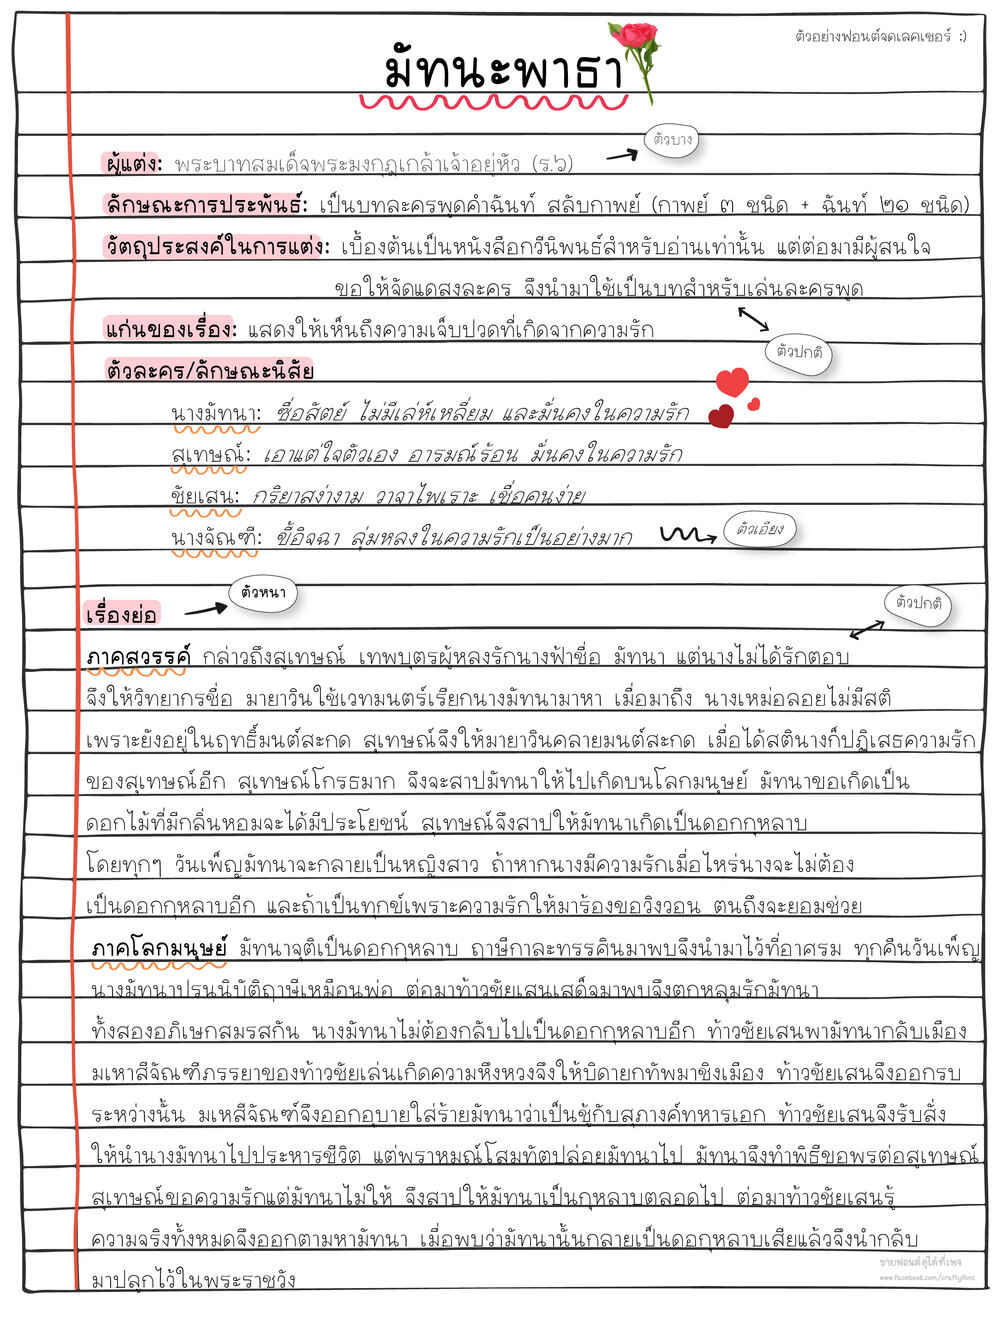 ตัวอย่างฟอนต์จดเลคเชอร์ :)
มัทนะพาธา
ตัวบาง
ผู้แต่ง: พระบาทสมเด็จพระมงกุฎเกล้าเจ้าอยู่หัว (ร.๖)
ลักษณะการประพันธ์: เป็นบทละครพูดคำฉันท์ สลับกาพย์ (กาพย์ ๓ ชนิด + ฉันท์ ๒๑ ชนิด)
วัตถุประสงค์ในการแต่ง: เบื้องต้นเป็นหนังสือกวีนิพนธ์สำหรับอ่านเท่านั้น แต่ต่อมามีผู้สนใจ
ขอให้จัดแดสงละคร จึงนำมาใช้เป็นบทสำหรับเล่นละครพูด
แก่นของเรื่อง: แสดงให้เห็นถึงความเจ็บปวดที่เกิดจากความรัก
ตัวปกติ
ตัวละคร/ลักษณะนิสัย
นางมัทนา: ซื่อสัตย์ ไม่มีเล่ห์เหลี่ยม และมั่นคงในความรัก
สุเทษณ์: เอาแต่ใจตัวเอง อารมณ์ร้อน มั่นคงในความรัก
ชัยเสน: กริยาสง่างาม วาจาไพเราะ เชื่อคนง่าย
นางจัณฑี: ขี้อิจฉา ลุ่มหลงในความรักเป็นอย่างมาก
ตัวเอียง
ตัวหนา
ตัวปกติ
เรื่องย่อ
ภาคสวรรค์ กล่าวถึงสุเทษณ์ เทพบุตรผู้หลงรักนางฟ้าชื่อ มัทนา แต่นางไม่ได้รักตอบ
จึงให้วิทยากรชื่อ มายาวินใช้เวทมนตร์เรียกนางมัทนามาหา เมื่อมาถึง นางเหม่อลอยไม่มีสติ
เพราะยังอยู่ในฤทธิ์มนต์สะกด สุเทษณ์จึงให้มายาวินคลายมนต์สะกด เมื่อได้สตินางก็ปฏิเสธความรัก
ของสุเทษณ์อีก สุเทษณ์โกรธมาก จึงจะสาปมัทนาให้ไปเกิดบนโลกมนุษย์ มัทนาขอเกิดเป็น
ดอกไม้ที่มีกลิ่นหอมจะได้มีประโยชน์ สุเทษณ์จึงสาปให้มัทนาเกิดเป็นดอกกุหลาบ
โดยทุกๆ วันเพ็ญมัทนาจะกลายเป็นหญิงสาว ถ้าหากนางมีความรักเมื่อไหร่นางจะไม่ต้อง
เป็นดอกกุหลาบอีก และถ้าเป็นทุกข์เพราะความรักให้มาร้องขอวิงวอน ตนถึงจะยอมช่วย
ภาคโลกมนุษย์ มัทนาจุติเป็นดอกกุหลาบ ฤาษีกาละทรรศินมาพบจึงนำมาไว้ที่อาศรม ทุกคืนวันเพ็ญ
นางมัทนาปรนนิบัติฤาษีเหมือนพ่อ ต่อมาท้าวชัยเสนเสด็จมาพบจึงตกหลุมรักมัทนา
ทั้งสองอภิเษกสมรสกัน นางมัทนาไม่ต้องกลับไปเป็นดอกกุหลาบอีก ท้าวชัยเสนพามัทนากลับเมือง
มเหาสีจัณฑีภรรยาของท้าวชัยเล่นเกิดความหึงหวงจึงให้บิดายกทัพมาชิงเมือง ท้าวชัยเสนจึงออกรบ
ระหว่างนั้น มเหสีจัณฑ์จึงออกอุบายใส่ร้ายมัทนาว่าเป็นชู้กับสุภางค์ทหารเอก ท้าวชัยเสนจึงรับสั่ง
ให้นำนางมัทนาไปประหารชีวิต แต่พราหมณ์โสมทัตปล่อยมัทนาไป มัทนาจึงทำพิธีขอพรต่อสุเทษณ์
สุเทษณ์ขอความรักแต่มัทนาไม่ให้ จึงสาปให้มัทนาเป็นกุหลาบตลอดไป ต่อมาท้าวชัยเสนรู้
ความจริงทั้งหมดจึงออกตามหามัทนา เมื่อพบว่ามัทนานั้นกลายเป็นดอกุหลาบเสียแล้วจึงนำกลับ
มาปลูกไว้ในพระราชวัง
ขายฟอนต์ดูได้ที่เพจ
www.facebook.com/craftyfont